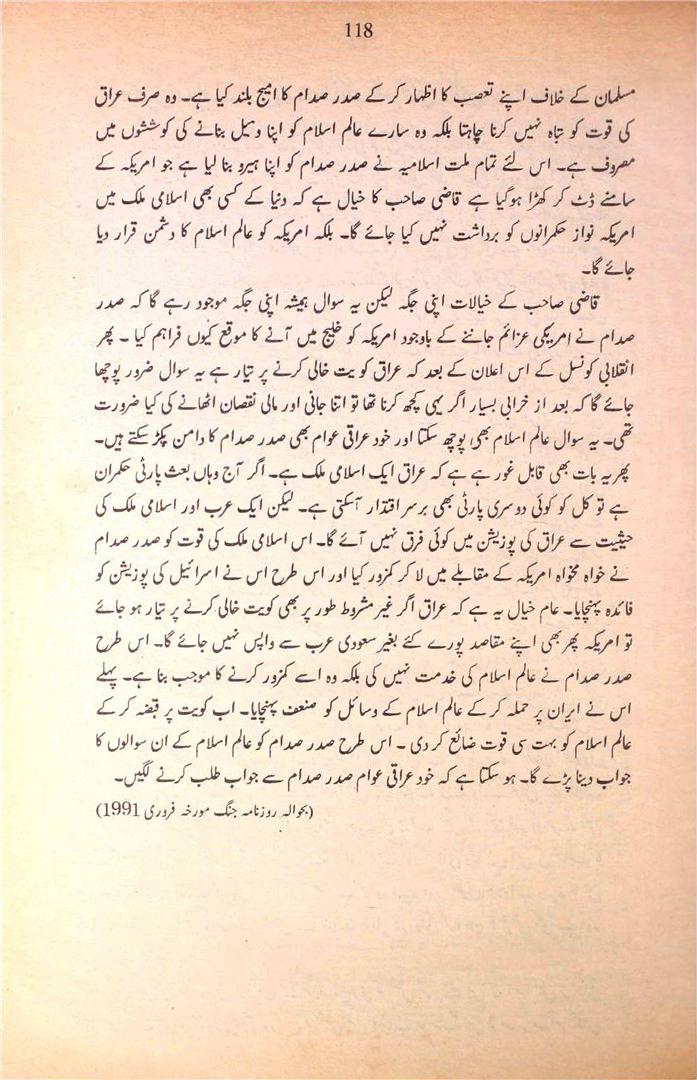 118
مسلمان کے خلاف اپنے تعصب کا اظہار کر کے صدر صدام کا امیج بلند کیا ہے۔ وہ صرف عراق
کی قوت کو تباہ نہیں کرنا چاہتا بلکہ وہ سارے عالم اسلام کو اپنا دبیل بنانے کی کوششوں میں
مصروف ہے۔ اس لئے تمام ملت اسلامیہ نے صدر صدام کو اپنا ہیرو بنا لیا ہے جو امریکہ کے
سامنے ڈٹ کر کھڑا ہوگیا ہے قاضی صاحب کا خیال ہے کہ دنیا کے کسی بھی اسلامی ملک میں
امریکہ نواز حکمرانوں کو برداشت نہیں کیا جائے گا۔ بلکہ امریکہ کو عالم اسلام کا دشمن قرار دیا
جائے گا۔
قاضی صاحب کے خیالات اپنی جگہ لیکن یہ سوال ہمیشہ اپنی جگہ موجود رہے گا کہ صدر
صدام نے امریکی عزائم جاننے کے باوجود امریکہ کو خلیج میں آنے کا موقع کیوں فراہم کیا ۔ پھر
انقلابی کونسل کے اس اعلان کے بعد کہ عراق کویت خالی کرنے پر تیار ہے یہ سوال ضرور پوچھا
جائے گا کہ بعد از خرابی بسیار اگر یہی کچھ کرنا تھا تو اتنا جانی اور مالی نقصان اٹھانے کی کیا ضرورت
تھی۔ یہ سوال عالم اسلام بھی پوچھ سکتا اور خود عراقی عوام بھی صدر صدام کا دامن پکڑ سکتے ہیں۔
پھر یہ بات بھی قابل غور ہے ہے کہ عراق ایک اسلامی ملک ہے۔ اگر آج وہاں بعث پارٹی حکمران
ہے تو کل کو کوئی دوسری پارٹی بھی برسر اقتدار آسکتی ہے۔ لیکن ایک عرب اور اسلامی ملک کی
حیثیت سے عراق کی پوزیشن میں کوئی فرق نہیں آئے گا۔ اس اسلامی ملک کی قوت کو صدر صدام
نے خواہ مخواہ امریکہ کے مقابلے میں لا کر کمزور کیا اور اس طرح اس نے اسرائیل کی پوزیشن کو
فائدہ پہنچایا۔ عام خیال یہ ہے کہ عراق اگر غیر مشروط طور پر بھی کویت خالی کرنے پر تیار ہو جائے
تو امریکہ پھر بھی اپنے مقاصد پورے کئے بغیر سعودی عرب سے واپس نہیں جائے گا۔ اس طرح
صدر صدام نے عالم اسلام کی خدمت نہیں کی بلکہ وہ اسے کمزور کرنے کا موجب بنا ہے۔ پہلے
اس نے ایران پر حملہ کر کے عالم اسلام کے وسائل کو صنعف پہنچایا۔ اب کویت پر قبضہ کر کے
عالم اسلام کو بہت سی قوت ضائع کر دی ۔ اس طرح صدر صدام کو عالم اسلام کے ان سوالوں کا
جواب دینا پڑے گا۔ ہو سکتا ہے کہ خود عراقی عوام صدر صدام سے جواب طلب کرنے لگیں۔
(بحوالہ روزنامہ جنگ مورخہ فروری 1991)